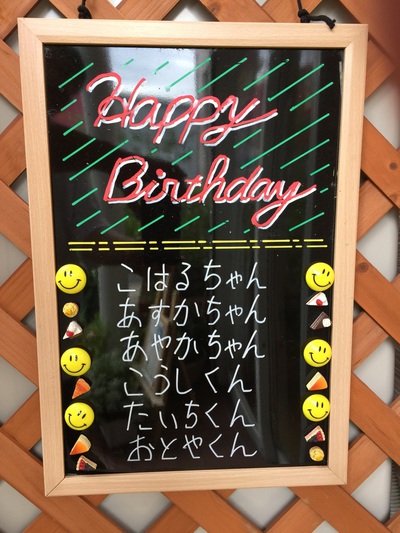 Happy
Birthday
こはるちゃん
あすかちゃん
あやかちゃん
こうしくん
たいちくん
おとやくん